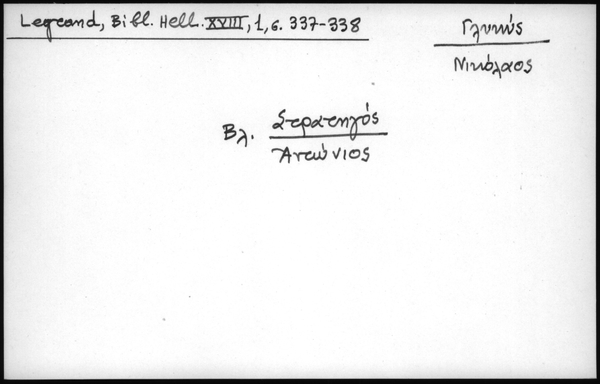 Legrand, Bibl. Hell. XVIII, 1, σ. 337-338
Γλυκύς
Νικόλαος
Βλ. Στρατηγός
Αντώνιος